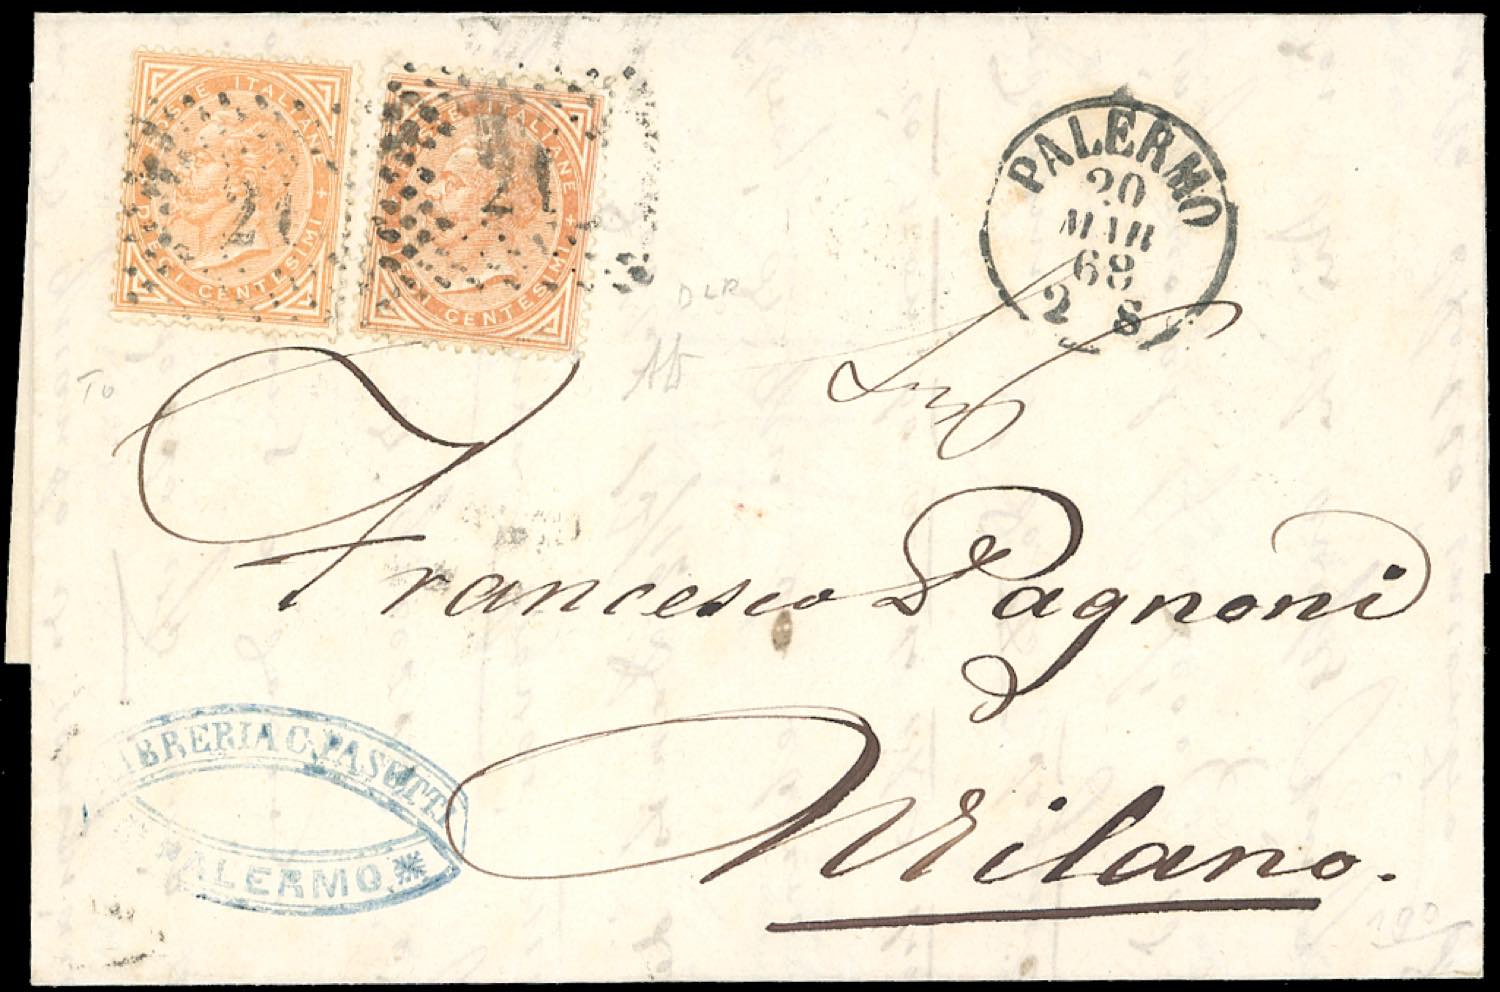 POSTE ITALIANE
DIECI CENTESIMI
21
POSTE ITALIANE
CENTESIMI
21
PALERMO
20
MAR
68
2 S
DLR
TO
Francesco Pagnoni
Milano.
LIBRERIA C. PASUTTI
PALERMO